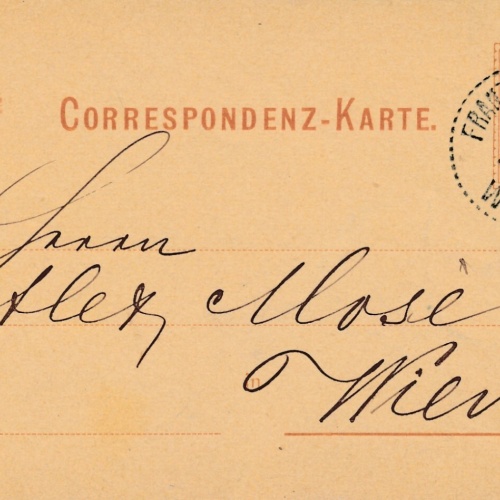 CORRESPONDENZ-KARTE.
FRAN
W
Herrn
Alex, Mose
Wien